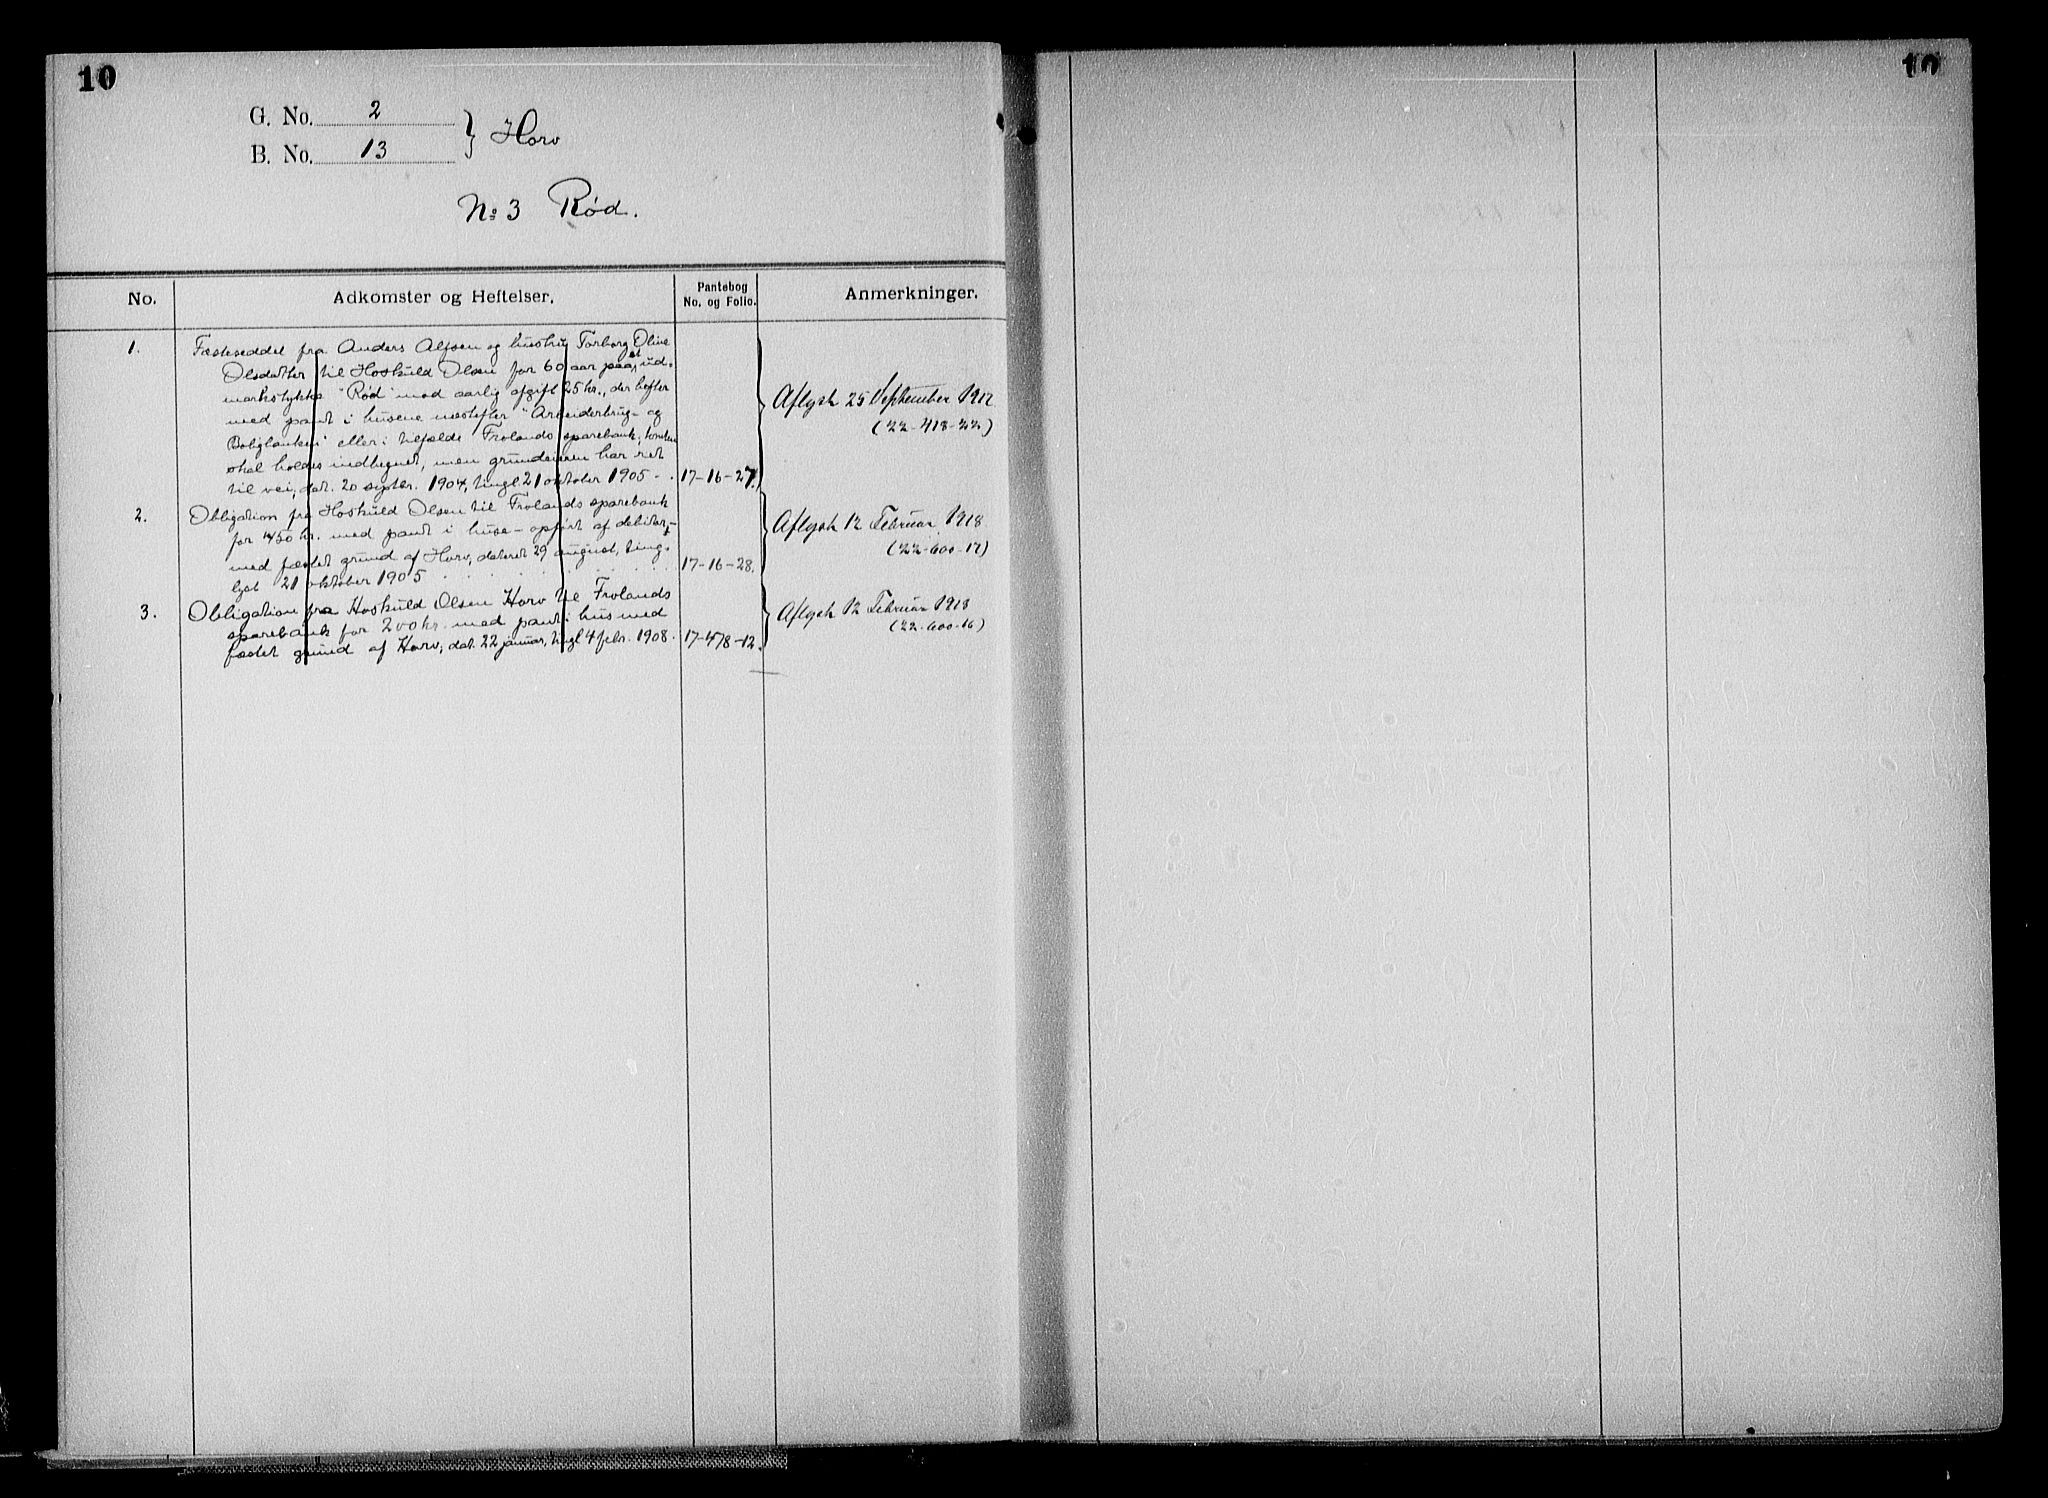 10
10
G. No. 2
B. No. 13
} Horv
No 3 Rød.
No.
Adkomster og Heftelser.
Pantebog
No. og Folio.
Anmerkninger.
1. Fæsteseddel fra Anders Alfsen og hustru Torborg Oline
Olsdatter til Hoskuld Olsen for 60 aar paa et ud-
markstykke "Rød" mod aarlig afgift 25 kr., der hefter
med pant i husene næstefter "Arbeiderbrug- og
Boligbanken" eller i tilfælde Frolands sparebank;
skal holdes indhegnet, men grundeieren har ret
til vei; dat. 20 septbr. 1904, tingl 21 oktober 1905 - . 17-16-27.
Aflyst 25 September 1917
(22-418-22)
2. Obligation fra Hoskuld Olsen til Frolands sparebank
for 450 kr. med pant i huse - opført af debitor, -
med fæstet grund af Horv, dateret 29 august, ting-
lyst 21 oktober 1905 . . . . . . . 17-16-28.
Aflyst 12 Februar 1918
(22-600-17)
3. Obligation fra Hoskuld Olsen Horv til Frolands
sparebank for 200 kr. med pant i hus med
fæstet grund af Horv; dat. 22 januar, tingl 4 febr. 1908. 17-478-12.
Aflyst 12 Februar 1918
(22-600-16)